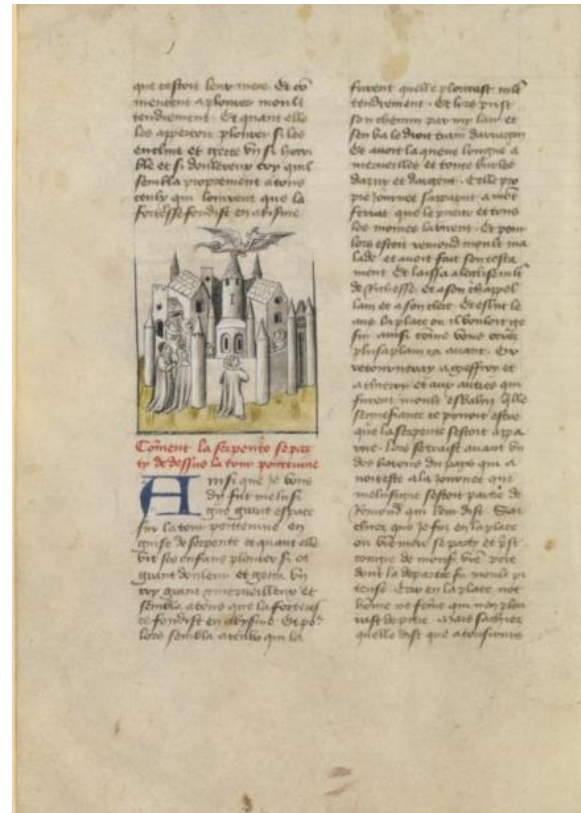 que cestoit leur mere. Et cō
mencent a plourer moult
tendrement. Et quant elle
les apperçoit plourer si les
encline et gecte vn si horri
ble et si douleureux cry quil
sembla proprement a tous
ceulx qui louirent que la
forteresse fondist en abisme
Cōment la serpente se par
ty de dessus la tour poiteuine
Ainsi que Je vous
dy fut melusi
gne grant espace
sur la tour poitteuine en
guise de serpente et quant elle
vit ses enfans plourer si ot
grant douleur et gecta vn
cry grant et merueilleux et
sembla a tous que la forteres
ce fondist en abysme. Et po
lors sembla a ceulx qui la
furent quelle plourast mlt
tendrement. Et lors prist
son chemin par my lair et
sen va le droit train darragon
Et auoit la queue longue a
merueilles et toute burlee
dazur et dargent. Celle pro
pre Journee sapparut a mōt
ferrat que le prieur et tous
les moines la virent. Et pour
lors estoit remond moult ma
lade et auoit fait son testa
ment. Et laissa a leglise mlt
de Richesse et a son chappel
lain et a son clerc. Et eslut le
ans la place ou il vouloit ge
sir ainsi cōme vous orrez
plus a plain cy auant. Or
retourneray a geffroy et
a thierry et aux autres qui
furent moult esbahiz qlle
segnefiance ce pouoit estre
que la serpente sestoit appa
rue. Lors se traist auant vn
des barons du pays qui a
uoit este a la Journee que
melusigne sestoit partie de
Remond qui leur dist. Sai
chiez que Je fu en la place
ou vrē mere se party et prist
congie de monsr vrē pere
dont la departie fu moult pi
teuse. Car en la place not
hōme ne fēme qui nen plou
rast de pitie. Mais sachiez
quelle dist que a tousiours